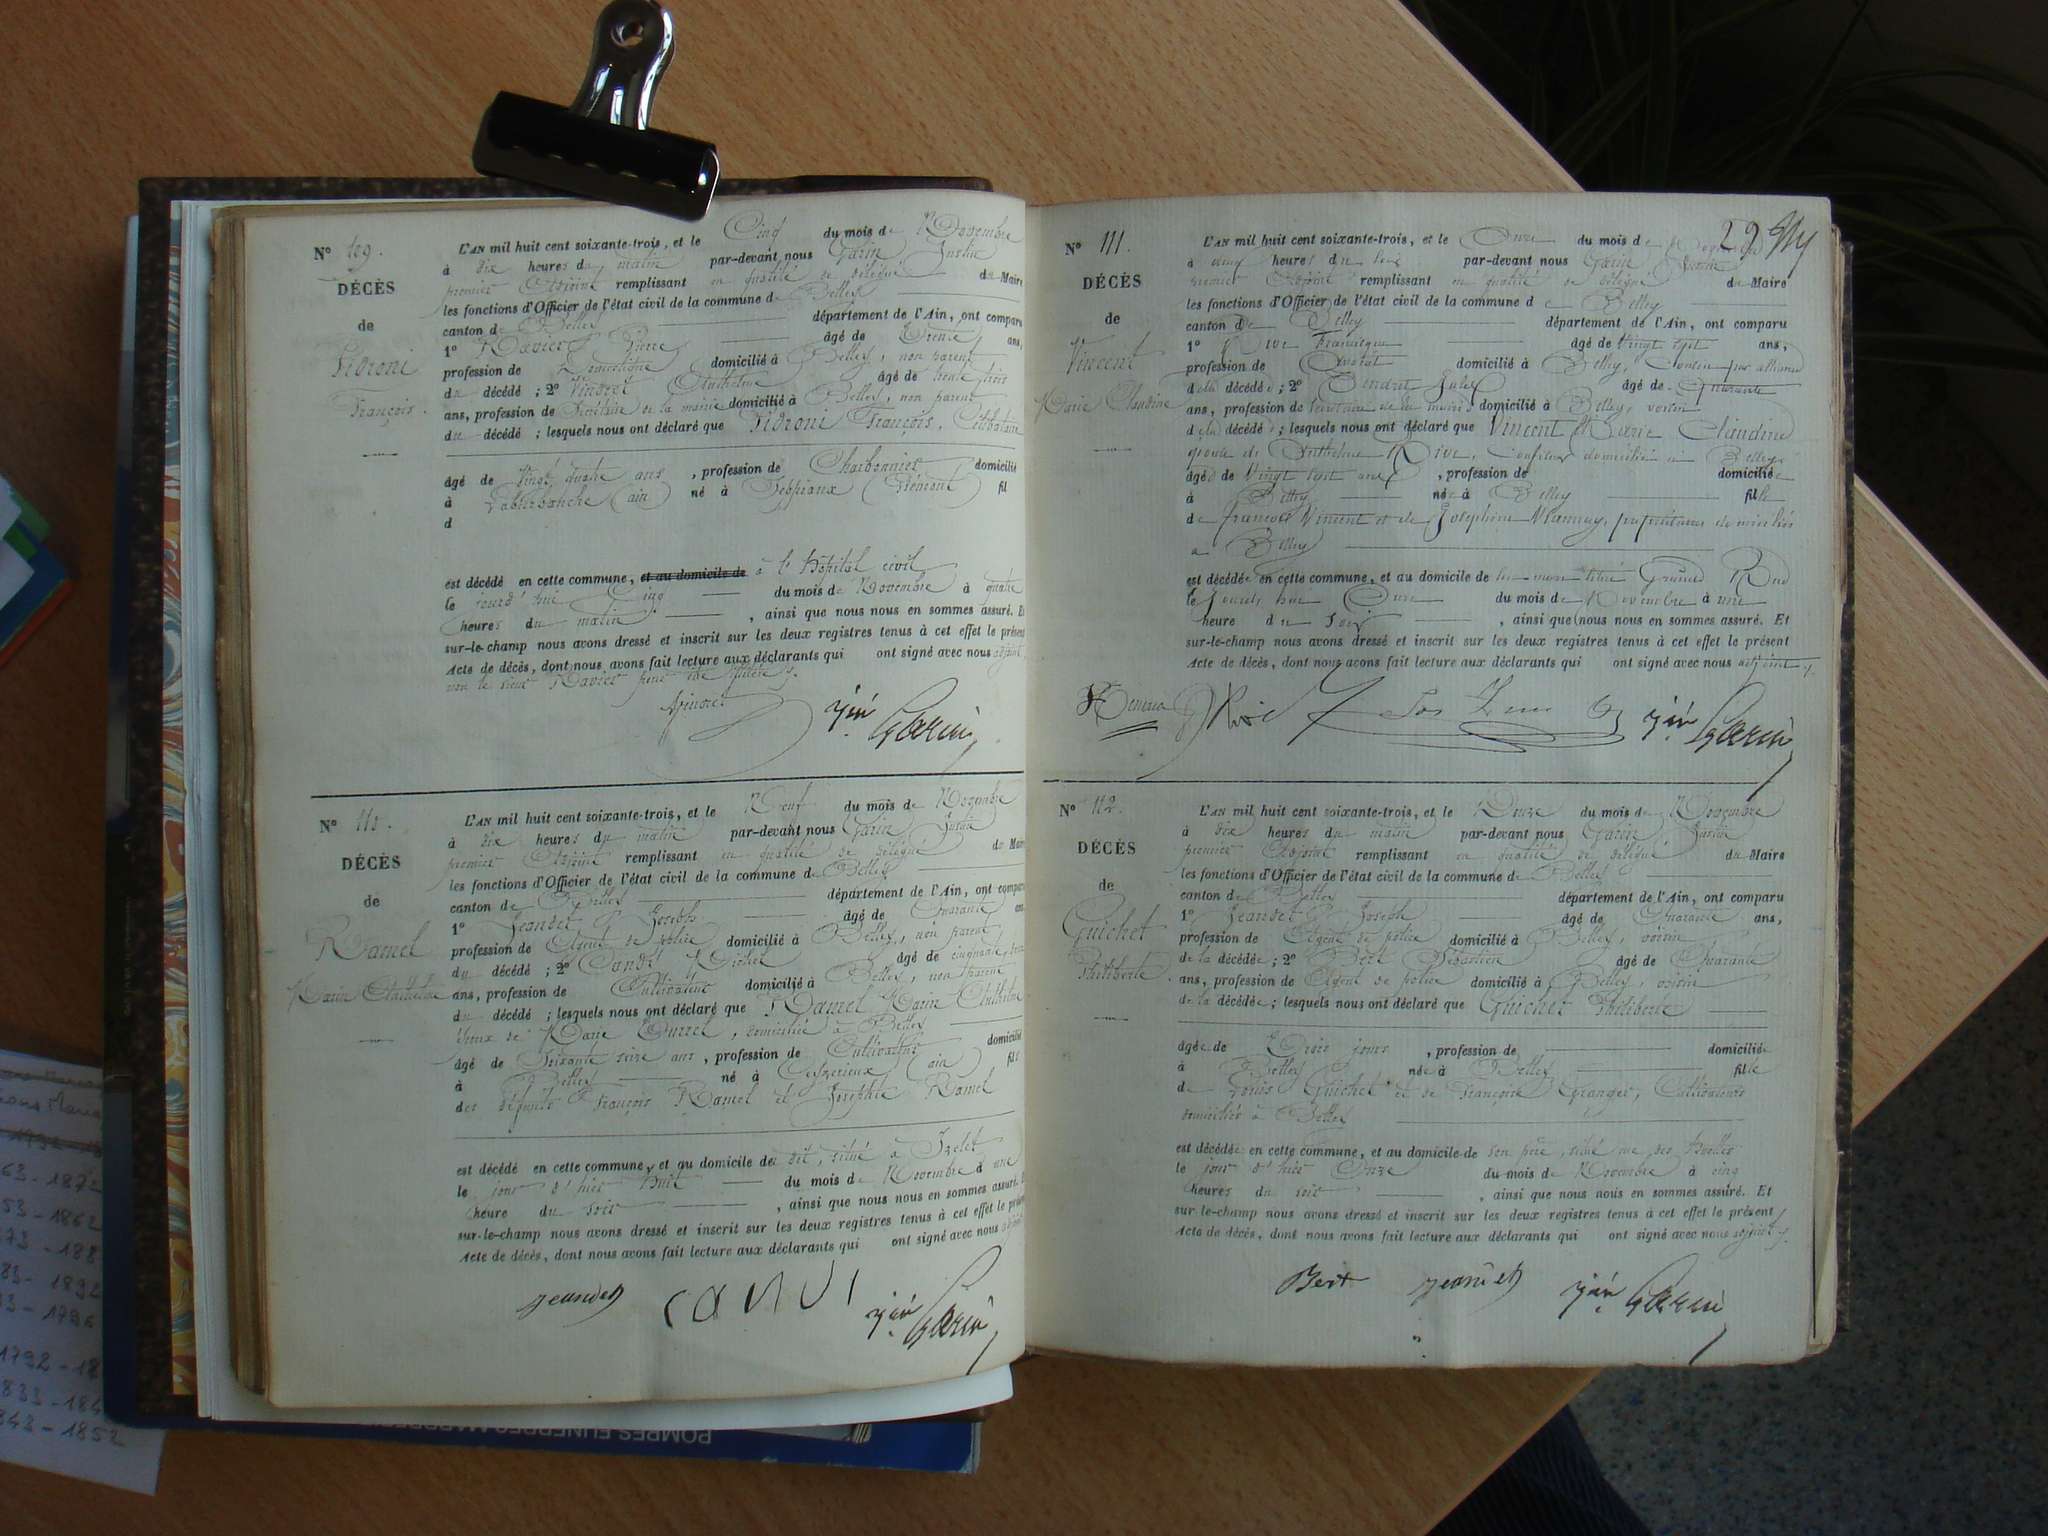 N° 109.
DÉCÈS
de
Fidroni
François.
L'AN mil huit cent soixante-trois, et le Cinq du mois de Novembre
à dix heures du matin par-devant nous Garin Justin
premier Adjoint remplissant en qualité de délégué du Maire
les fonctions d'Officier de l'état civil de la commune de Belley
canton de Belley département de l'Ain, ont comparu
1° Ravier Pierre âgé de Trente ans,
profession de Domestique domicilié à Belley, non parent
du décédé ; 2° Vindret Anthelme âgé de trente trois
ans, profession de Secrétaire de la mairie domicilié à Belley, non parent
du décédé ; lesquels nous ont déclaré que Fidroni François, Célibataire
âgé de Vingt quatre ans, profession de Charbonnier domicilié
à Laburbanche (ain) né à (Piémont) fil
d
est décédé en cette commune, et au domicile de à l'hôpital civil
le jourd'hui Cinq du mois de Novembre à quatre
heures du matin, ainsi que nous nous en sommes assuré. Et
sur-le-champ nous avons dressé et inscrit sur les deux registres tenus à cet effet le présent
Acte de décès, dont nous avons fait lecture aux déclarants qui ont signé avec nous adjoint
non le sieur Ravier pour être illitéré.
Garin
N° 110.
DÉCÈS
de
Ramel
Marin Anthelme
L'AN mil huit cent soixante-trois, et le Neuf du mois de Novembre
à dix heures du matin par-devant nous Garin Justin
premier Adjoint remplissant en qualité de délégué du Maire
les fonctions d'Officier de l'état civil de la commune de Belley
canton de Belley département de l'Ain, ont comparu
1° Jeandet Joseph âgé de Quarante ans
profession de Agent de police domicilié à Belley, non parent
du décédé ; 2° Candi Michel âgé de cinquante
ans, profession de Cultivateur domicilié à Belley, non parent
du décédé ; lesquels nous ont déclaré que Ramel Marin Anthelme
Veuf de Marie Curret, domicilié à Belley
âgé de Soixante seize ans, profession de Cultivateur domicilié
à Belley né à Ceyzerieux (ain) fils
des défunts François Ramel et Josephte Ramel
est décédé en cette commune, et au domicile de dit, situé à Izelet
le jour d'hier huit du mois de Novembre à une
heure du soir, ainsi que nous nous en sommes assuré. Et
sur-le-champ nous avons dressé et inscrit sur les deux registres tenus à cet effet le présent
Acte de décès, dont nous avons fait lecture aux déclarants qui ont signé avec nous adjoint
jeandet candi Garin
29
N° 111.
DÉCÈS
de
Vincent
Marie Claudine
L'AN mil huit cent soixante-trois, et le Onze du mois de Novembre
à cinq heures du soir par-devant nous Garin Justin
premier Adjoint remplissant en qualité de délégué du Maire
les fonctions d'Officier de l'état civil de la commune de Belley
canton de Belley département de l'Ain, ont comparu
1° Rive Francisque âgé de Vingt sept ans,
profession de Avocat domicilié à Belley, Cousin par alliance
de la décédée ; 2° Jules âgé de Quarante
ans, profession de Secrétaire de la mairie domicilié à Belley, voisin
de la décédée ; lesquels nous ont déclaré que Vincent Marie Claudine
épouse de Anthelme Rive, domicilié à Belley
âgée de Vingt sept ans, profession de domiciliée
à Belley née à Belley fille
de françois Vincent et de Joséphine, propriétaires domiciliés
à Belley
est décédée en cette commune, et au domicile de son mari situé Grande Rue
le Jourd'hui Onze du mois de Novembre à une
heure du soir, ainsi que nous nous en sommes assuré. Et
sur-le-champ nous avons dressé et inscrit sur les deux registres tenus à cet effet le présent
Acte de décès, dont nous avons fait lecture aux déclarants qui ont signé avec nous adjoint
Rive Garin
N° 112.
DÉCÈS
de
Guichet
Philiberte
L'AN mil huit cent soixante-trois, et le Douze du mois de Novembre
à dix heures du matin par-devant nous Garin Justin
premier Adjoint remplissant en qualité de délégué du Maire
les fonctions d'Officier de l'état civil de la commune de Belley
canton de Belley département de l'Ain, ont comparu
1° Jeandet Joseph âgé de Quarante ans,
profession de Agent de police domicilié à Belley, voisin
de la décédée ; 2° Bert Sébastien âgé de Quarante
ans, profession de Agent de police domicilié à Belley, voisin
de la décédée ; lesquels nous ont déclaré que Guichet Philiberte
âgée de Trois jours, profession de domiciliée
à Belley née à Belley fille
de Louis Guichet et de Françoise Granger, Cultivateurs
domiciliés à Belley
est décédée en cette commune, et au domicile de son père, situé rue des
le jour d'hier Onze du mois de Novembre à cinq
heures du soir, ainsi que nous nous en sommes assuré. Et
sur-le-champ nous avons dressé et inscrit sur les deux registres tenus à cet effet le présent
Acte de décès, dont nous avons fait lecture aux déclarants qui ont signé avec nous adjoint
Bert jeandet Garin
63-1872
53-1862
1792-18
833-184
843-1852
POMPES FUNEBRES